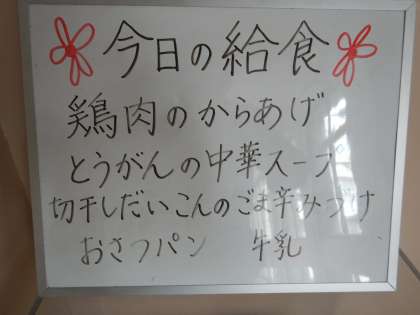 今日の給食
鶏肉のからあげ
とうがんの中華スープ
切干しだいこんのごま辛みづけ
おさつパン 牛乳